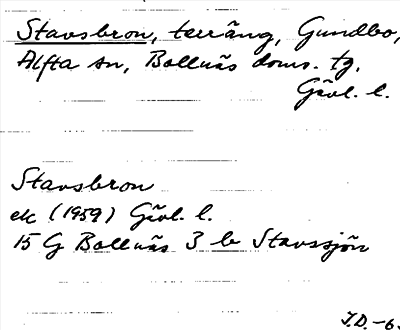 Stavsbron, terräng, Gundbo,
Alfta sn, Bollnäs doms. tg,
Gävl. l.
Stavsbron
ek (1959) Gävl. l.
15 G Bollnäs 3 b Stavssjön
J.D.-6